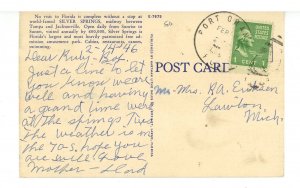 No visit to Florida is complete without a stop at
world-famed SILVER SPRINGS, midway between
Tampa and Jacksonville. Open daily Sunrise to
Sunset, visited annually by 800,000. Silver Springs is
Florida's largest and most heavily guaranteed free ad-
mission amusement park. Cabins, restaurants, cameo,
museums, zoos.
E-7972
2-14-46
Dear Ruby-Bob
Just a line to let
you know we are
well and having
a grand time were
at the springs Thurs
the weather is in
the 70s, hope you
are well Love
Mother - Dad
POST CARD
PORT O
FEB
1¢ 1¢
Mr-Mrs. R.A.
Lawton,
Mich.